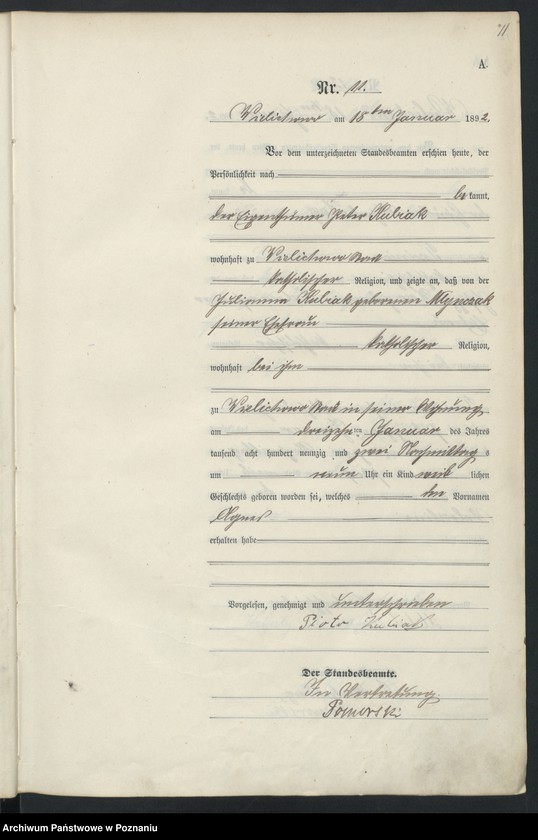 11
A.
Nr. 11.
Wielichowo am 15ten Januar 1892.
Vor dem unterzeichneten Standesbeamten erschien heute, der
Persönlichkeit nach
bekannt,
der Eigenthümer Peter Kubiak
wohnhaft zu Wielichowo
katholischer Religion, und zeigte an, daß von der
Julianna Kubiak geborenen Mlynczak
seiner Ehefrau
katholischer Religion,
wohnhaft bei ihm
zu Wielichowo in seiner Wohnung
am dreizehnten Januar des Jahres
tausend acht hundert neunzig und zwei Nachmittags
um neun Uhr ein Kind weiblichen
Geschlechts geboren worden sei, welches den Vornamen
Agnes
erhalten habe
Vorgelesen, genehmigt und unterschrieben
Piotr Kubiak
Der Standesbeamte.
In Vertretung.
Pomorski
Archiwum Państwowe w Poznaniu